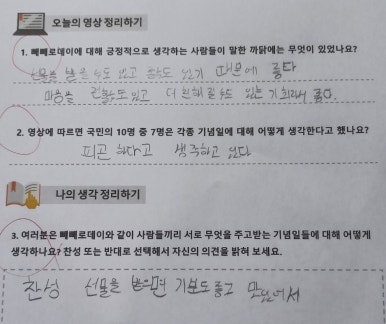 오늘의 영상 정리하기
1. 빼빼로데이에 대해 긍정적으로 생각하는 사람들이 말한 까닭에는 무엇이 있었나요?
선물을 받을 수도 있고 줄수도 있기 때문에 좋다
마음을 전할수도 있고 더 친해질 수도 있는 기회라서 좋다.
2. 영상에 따르면 국민의 10명 중 7명은 각종 기념일에 대해 어떻게 생각한다고 했나요?
피곤 하다고 생각하고 있다
나의 생각 정리하기
3. 여러분은 빼빼로데이와 같이 사람들끼리 서로 무엇을 주고받는 기념일들에 대해 어떻게
생각하나요? 찬성 또는 반대로 선택해서 자신의 의견을 밝혀 보세요.
찬성 선물을 받으면 기분도 좋고 맛있어서